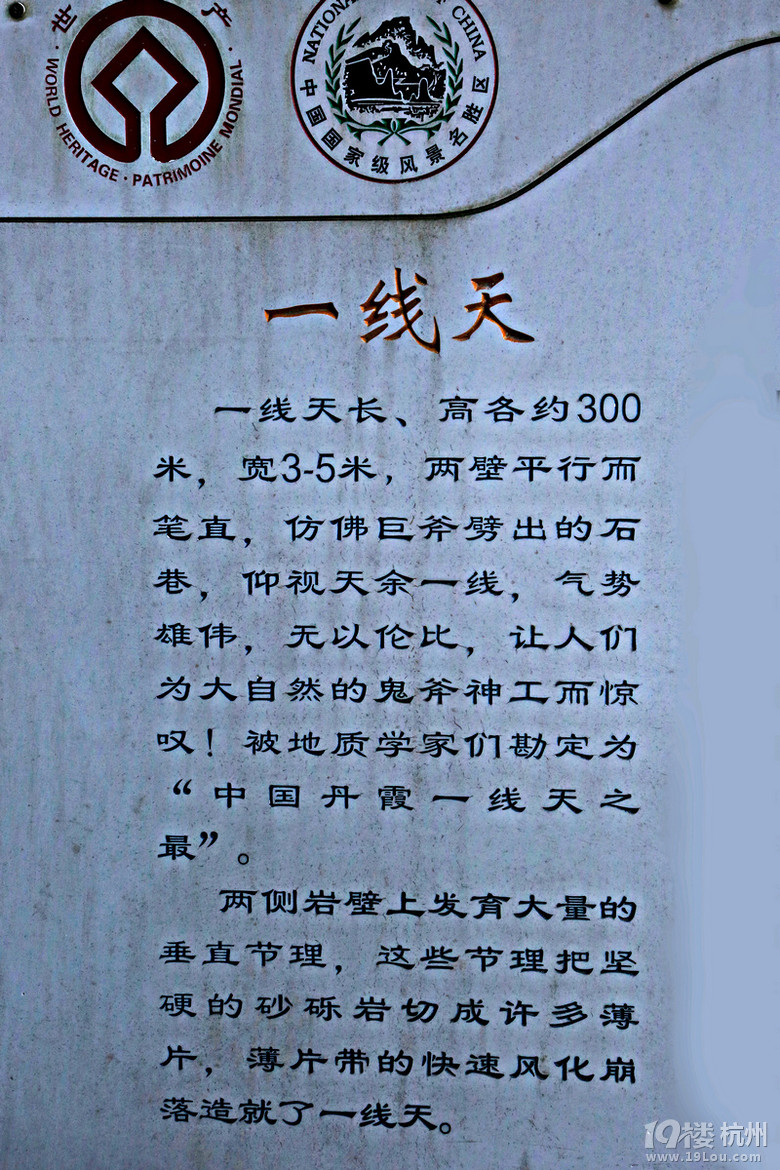 世 产
· WORLD HERITAGE · PATRIMOINE MONDIAL ·
NATIONAL CHINA
中国国家级风景名胜区
一线天
一线天长、高各约300
米，宽3-5米，两壁平行而
笔直，仿佛巨斧劈出的石
巷，仰视天余一线，气势
雄伟，无以伦比，让人们
为大自然的鬼斧神工而惊
叹！被地质学家们勘定为
“中国丹霞一线天之
最”。
两侧岩壁上发育大量的
垂直节理，这些节理把坚
硬的砂砾岩切成许多薄
片，薄片带的快速风化崩
落造就了一线天。
19楼 杭州
www.19Lou.com